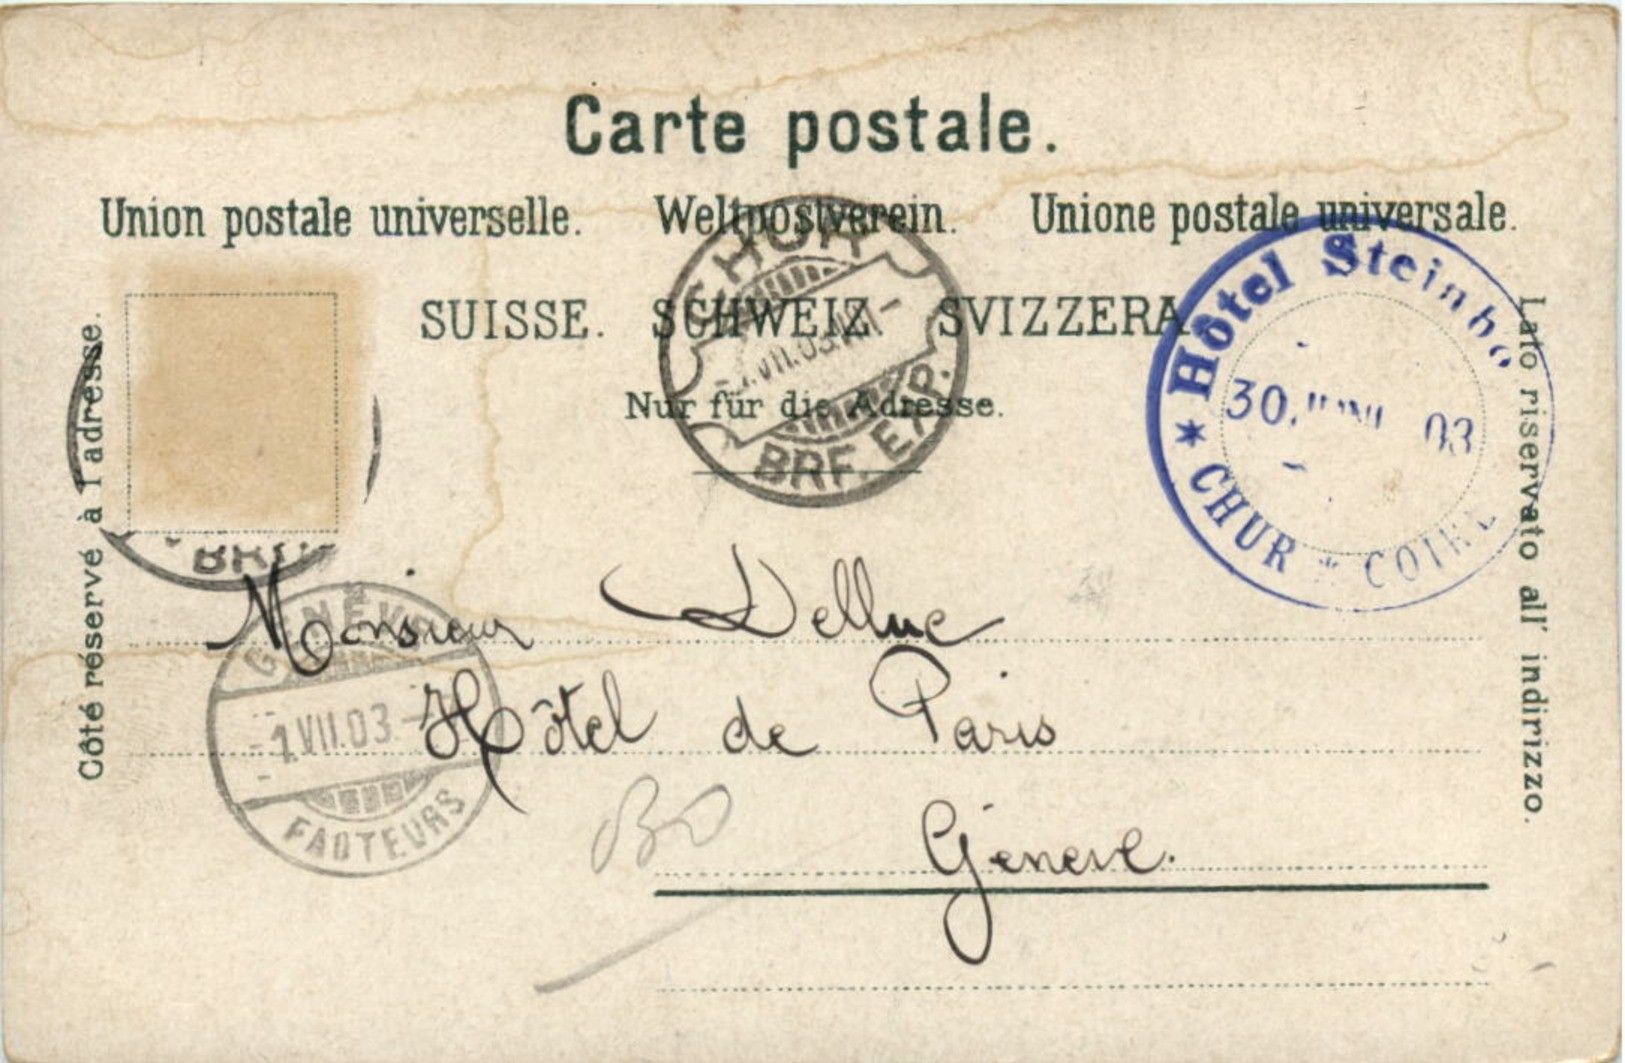 Carte postale.
Union postale universelle. Weltpostverein. Unione postale universale.
SUISSE. SCHWEIZ. SVIZZERA.
Nur für die Adresse.
Côté réservé à l'adresse.
Lato riservato all' indirizzo.
CHUR
VII.03
BRF. EXP.
Hôtel Steinbo
30. JUNI 03
* CHUR * COIRE
BRF
GENÈVE
1 VII.03
FACTEURS
Monsieur Delluc
Hôtel de Paris
Genève.